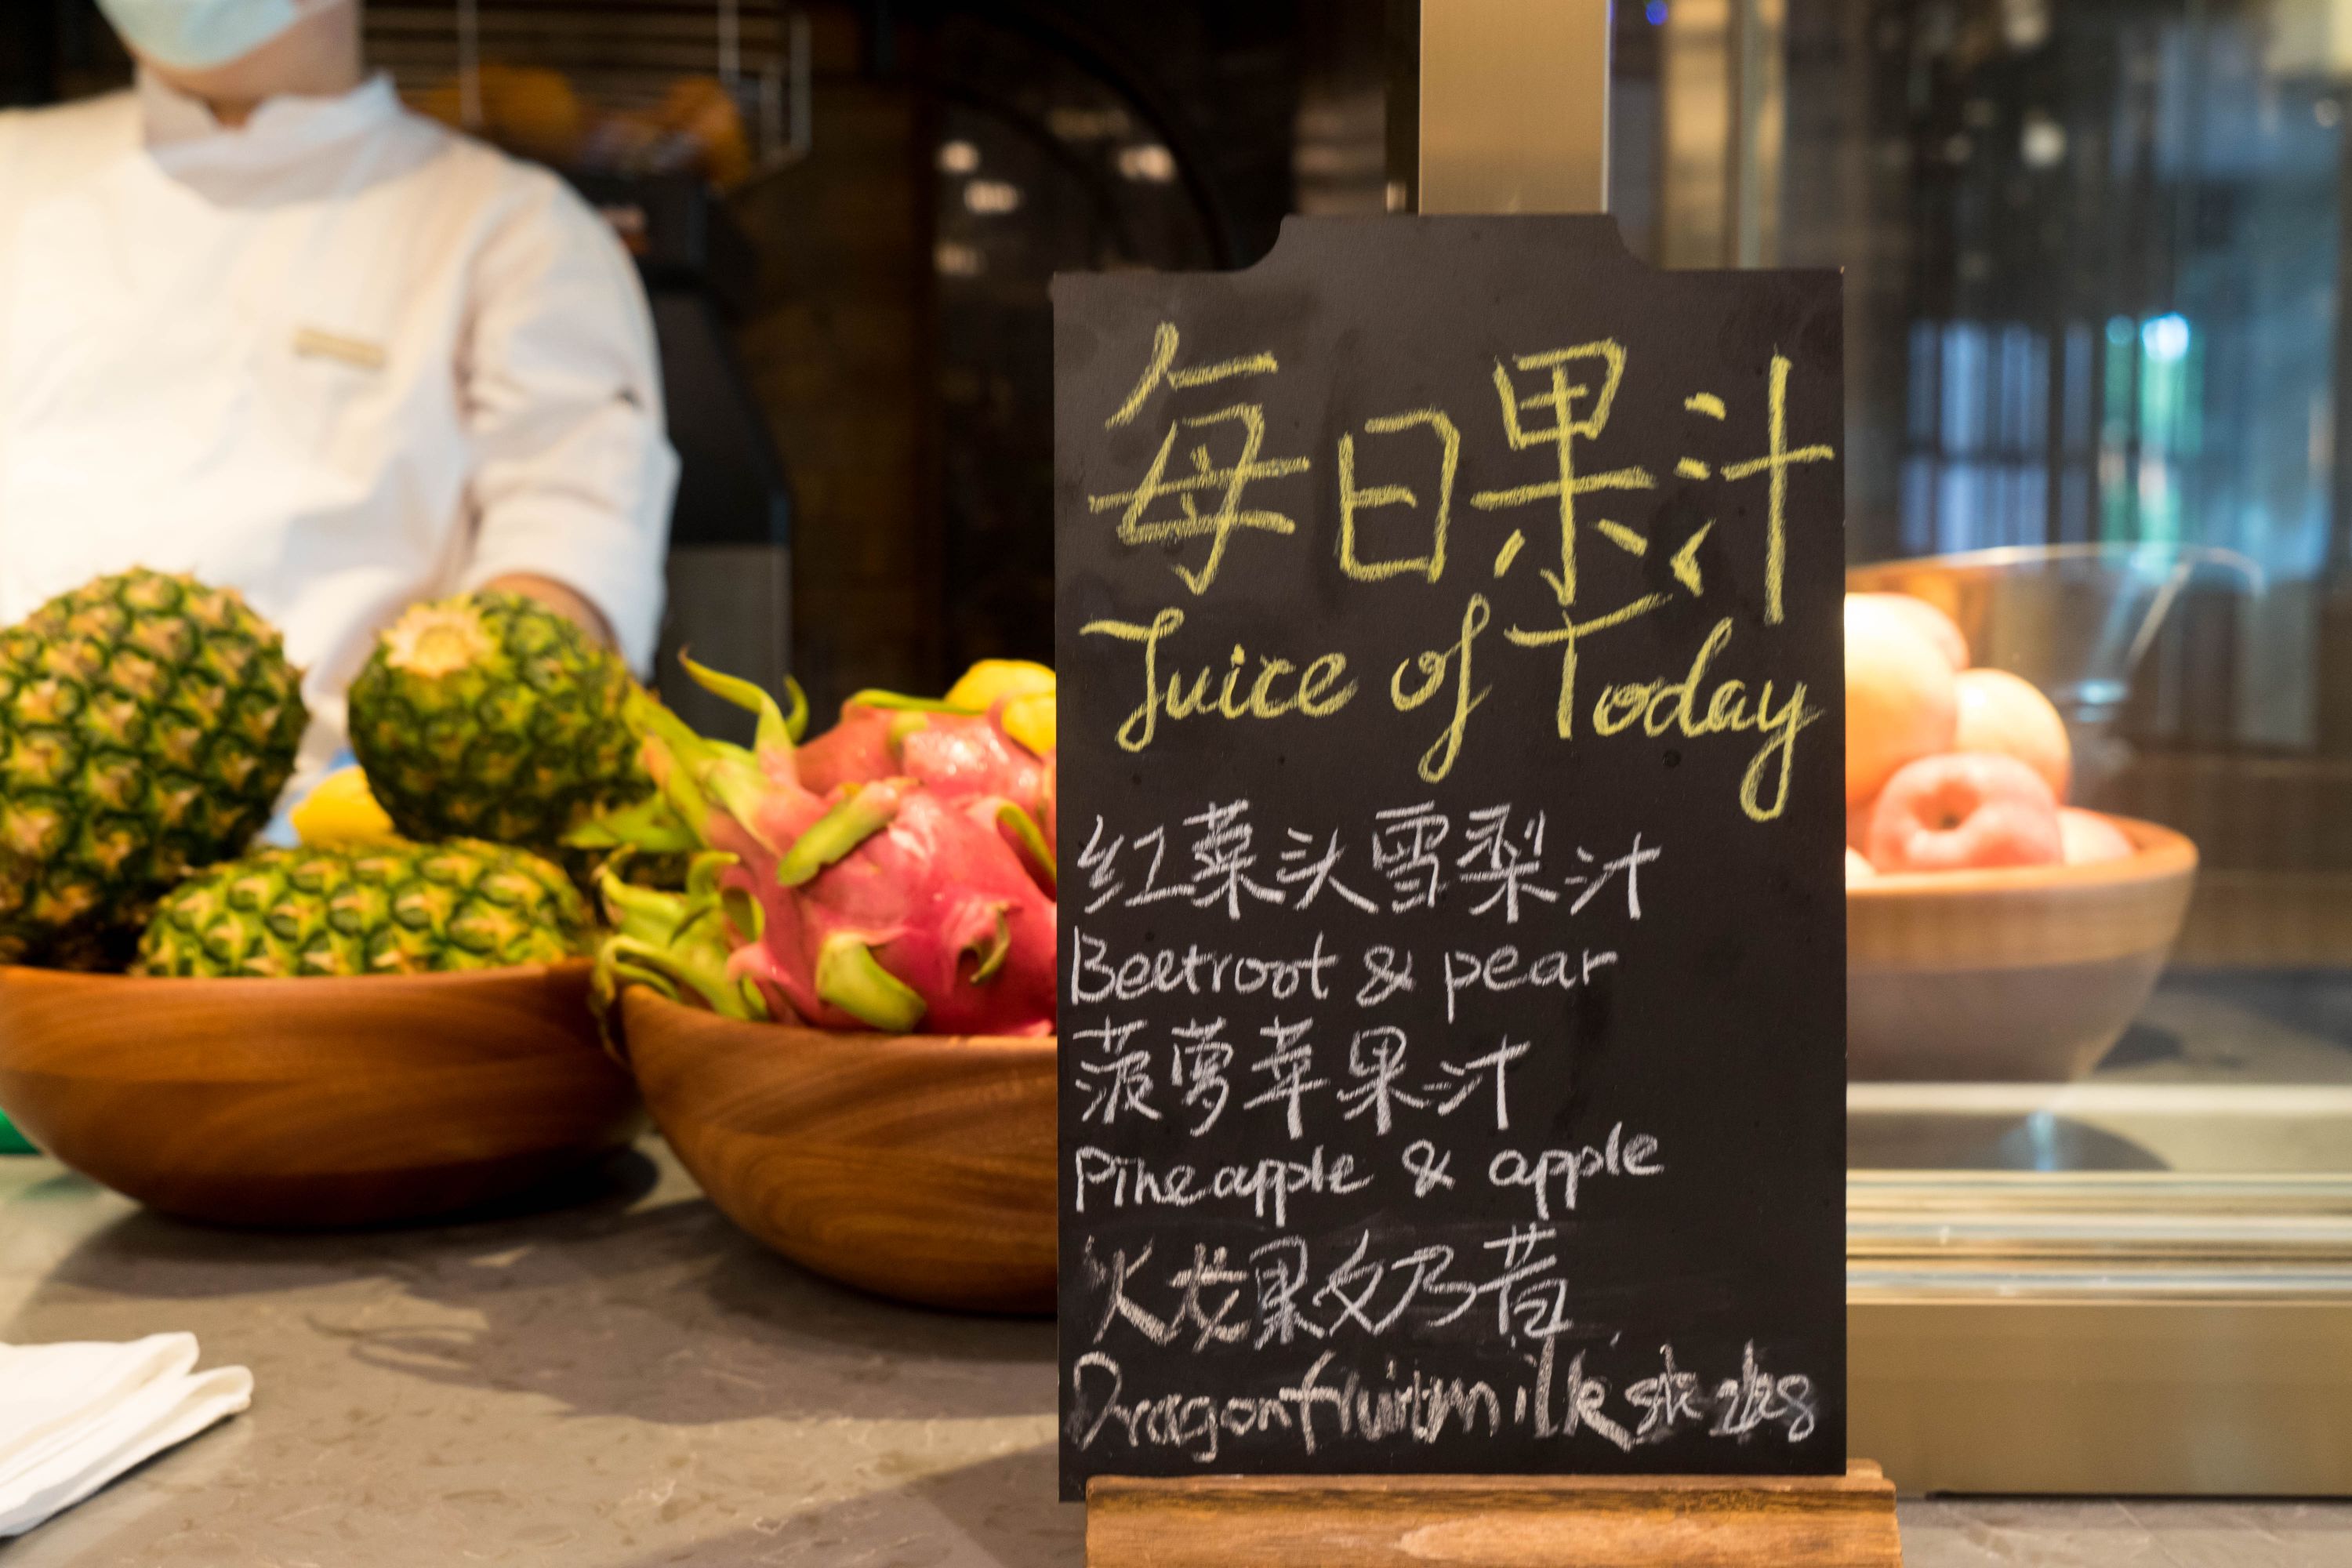 每日果汁
Juice of Today
红菜头雪梨汁
Beetroot & pear
菠萝苹果汁
Pineapple & apple
火龙果奶昔
Dragonfruit milk